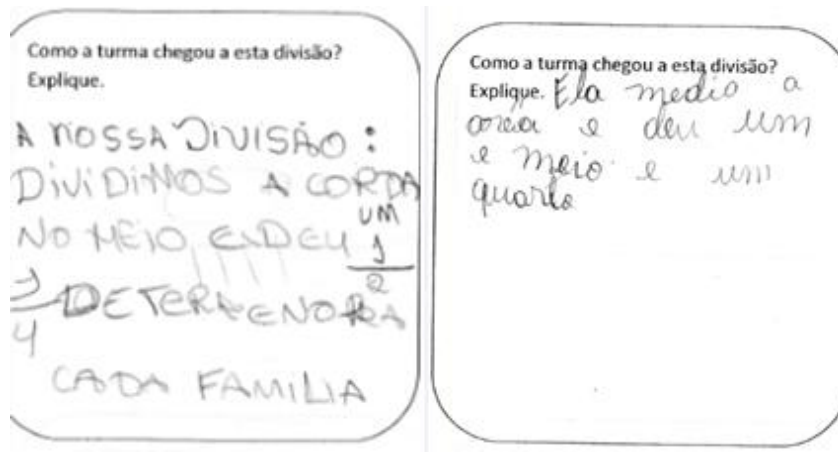 Como a turma chegou a esta divisão?
Explique.
A NOSSA DIVISÃO:
DIVIDIMOS A CORDA
NO MEIO E DEU UM 1/2
1/4 DE TERRA ENORRA
CADA FAMILIA
Como a turma chegou a esta divisão?
Explique. Ela medio a
area e deu um
e meio e um
quarto